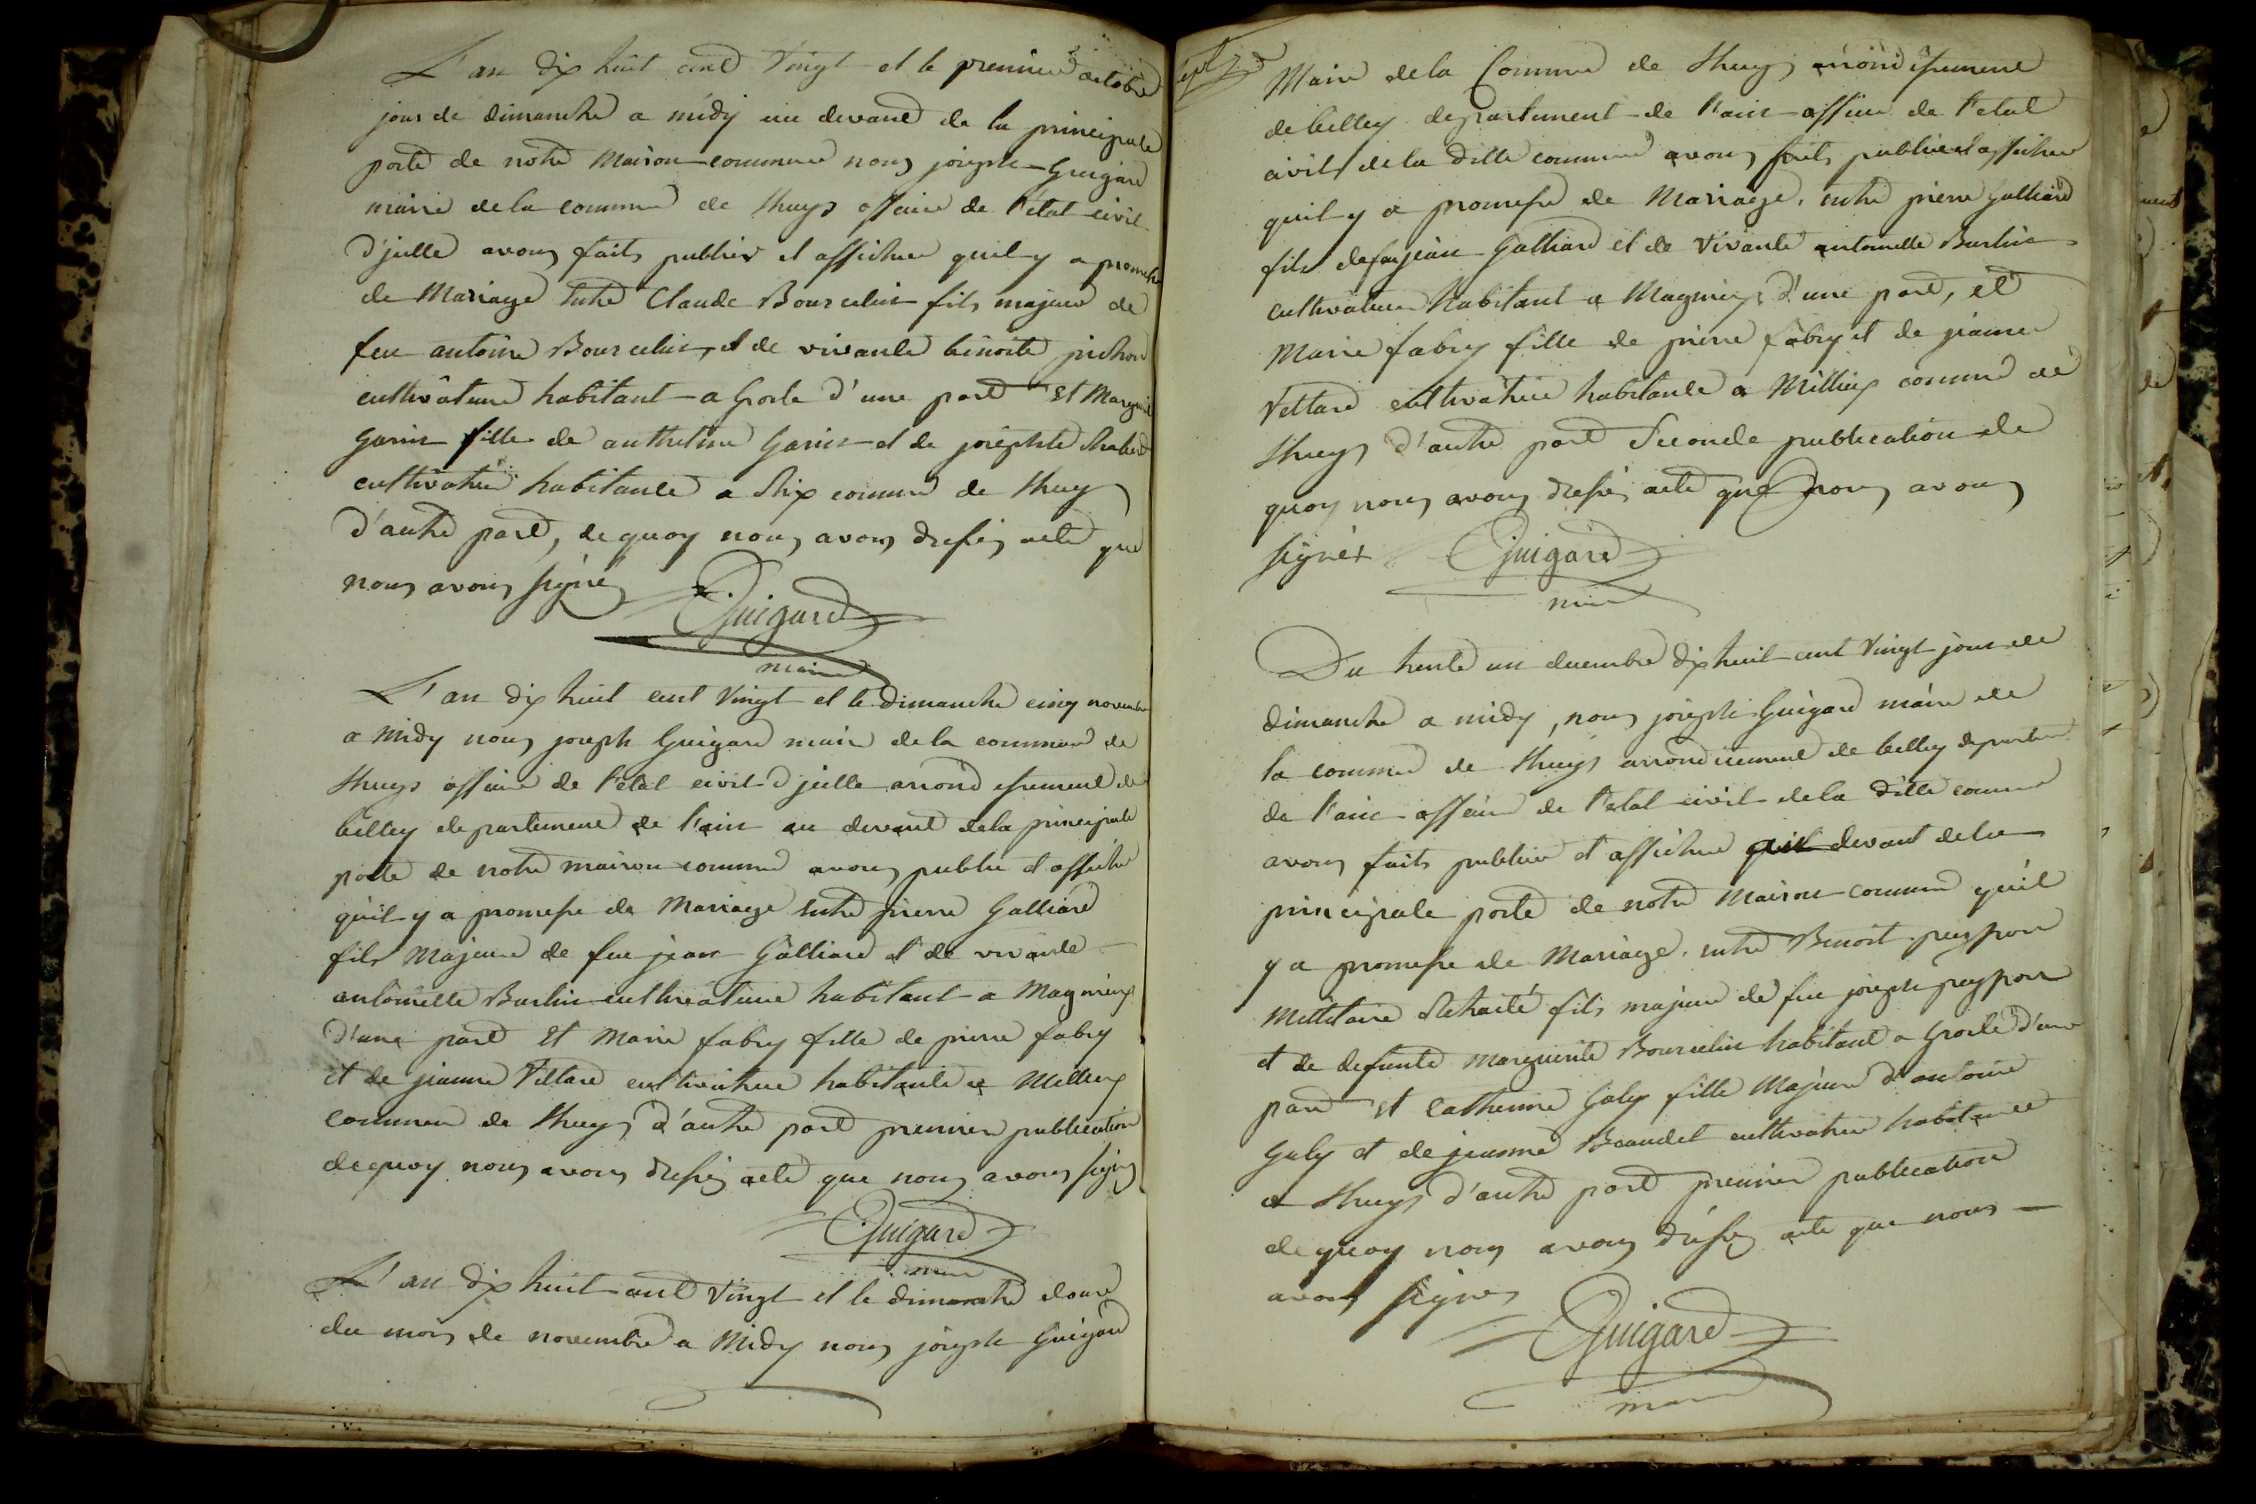 L'an dix huit cent vingt et le premier octobre
jour de dimanche a midy au devant de la principale
porte de notre maison commune nous joseph Guigard
maire de la commune de Lhuys officier de l'état civil
d'jcelle avons faits publier et afficher quil y a promesse
de Mariage entre Claude Bourcelin fils majeur de
feu antoine Bourcelin, et de vivante benoite pichon
cultivateur habitant a Groslé d'une part Et Marguerite
Garin fille de anthelme Garin et de josephte
cultivatrice habitante a Rix commune de Lhuys
d'autre part, de quoy nous avons dressés acte que
nous avons signés
Guigard
maire
L'an dix huit cent vingt et le dimanche cinq novembre
a Midy nous joseph Guigard maire de la commune de
Lhuys officier de l'etat civil d'jcelle arrondissement de
belley departement de l'ain au devant de la principale
porte de notre maison commune avons publié et affiché
qu'il y a promesse de Mariage entre pierre Galliard
fils Majeur de feu jean Galliard et de vivante
antoinette Burlin cultivateur habitant a Magnieux
d'une part Et Marie fabry fille de pierre fabry
et de jeanne Vettard cultivatrice habitante a Millieux
commune de Lhuys d'autre part premiere publication
de quoy nous avons dressés acte que nous avons signés
Guigard
maire
L'an dix huit cent vingt et le dimanche douze
du mois de novembre a Midy nous joseph Guigard
Maire de la Commune de Lhuys arrondissement
de belley departement de l'ain officier de l'etat
civil de la ditte commune avons faits publier et afficher
quil y a promesse de Mariage, entre pierre Galliard
fils de feu jean Galliard et de vivante antoinette Burlin
cultivateur habitant a Magnieux d'une part, et
Marie fabry fille de pierre fabry et de jeanne
Vettard cultivatrice habitante a Millieux commune de
Lhuys d'autre part Seconde publication de
quoy nous avons dressés acte que nous avons
signés Guigard
maire
Du trente un decembre dix huit cent vingt jour de
dimanche a midy, nous joseph Guigard maire de
la commune de Lhuys arrondissement de belley departement
de l'ain officier de l'etat civil de la ditte commune
avons faits publier et afficher devant de la
principale porte de notre maison commune qu'il
y a promesse de Mariage, entre Benoit peysson
Millitaire Retraité fils majeur de feu joseph peysson
et de defunte marguerite Bourcelin habitant a Groslé d'une
part Et Catherine Galy fille Majeure d'antoine
Galy et de jeanne Beaudet cultivatrice habitante
a Lhuys d'autre part premiere publication
de quoy nous avons dressés acte que nous
avons signés
Guigard
maire